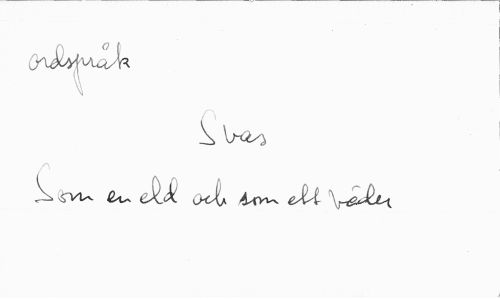 ordspråk
Svas
Som en eld och som ett väder